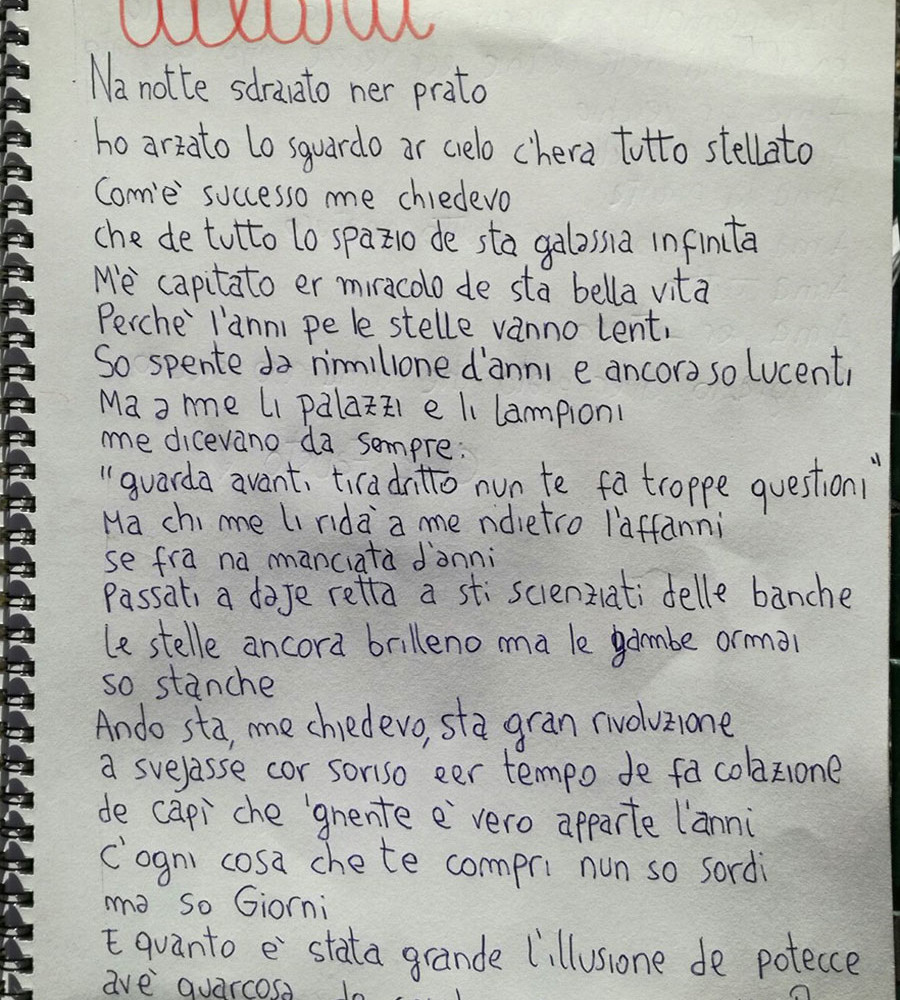 Na notte sdraiato ner prato
ho arzato lo sguardo ar cielo c'hera tutto stellato
Com'è successo me chiedevo
che de tutto lo spazio de sta galassia infinita
M'è capitato er miracolo de sta bella vita
Perchè l'anni pe le stelle vanno lenti
So spente da n'milione d'anni e ancora so lucenti
Ma a me li palazzi e li lampioni
me dicevano da sempre:
"guarda avanti tira dritto nun te fa troppe questioni"
Ma chi me li ridà a me ndietro l'affanni
se fra na manciata d'anni
Passati a daje retta a sti scienziati delle banche
le stelle ancora brilleno ma le gambe ormai
so stanche
Ando sta, me chiedevo, sta gran rivoluzione
a svejasse cor soriso eer tempo de fa colazione
de capì che 'gnente è vero apparte l'anni
C'ogni cosa che te compri nun so sordi
ma so Giorni
E quanto è stata grande l'illusione de potecce
avè quarcosa